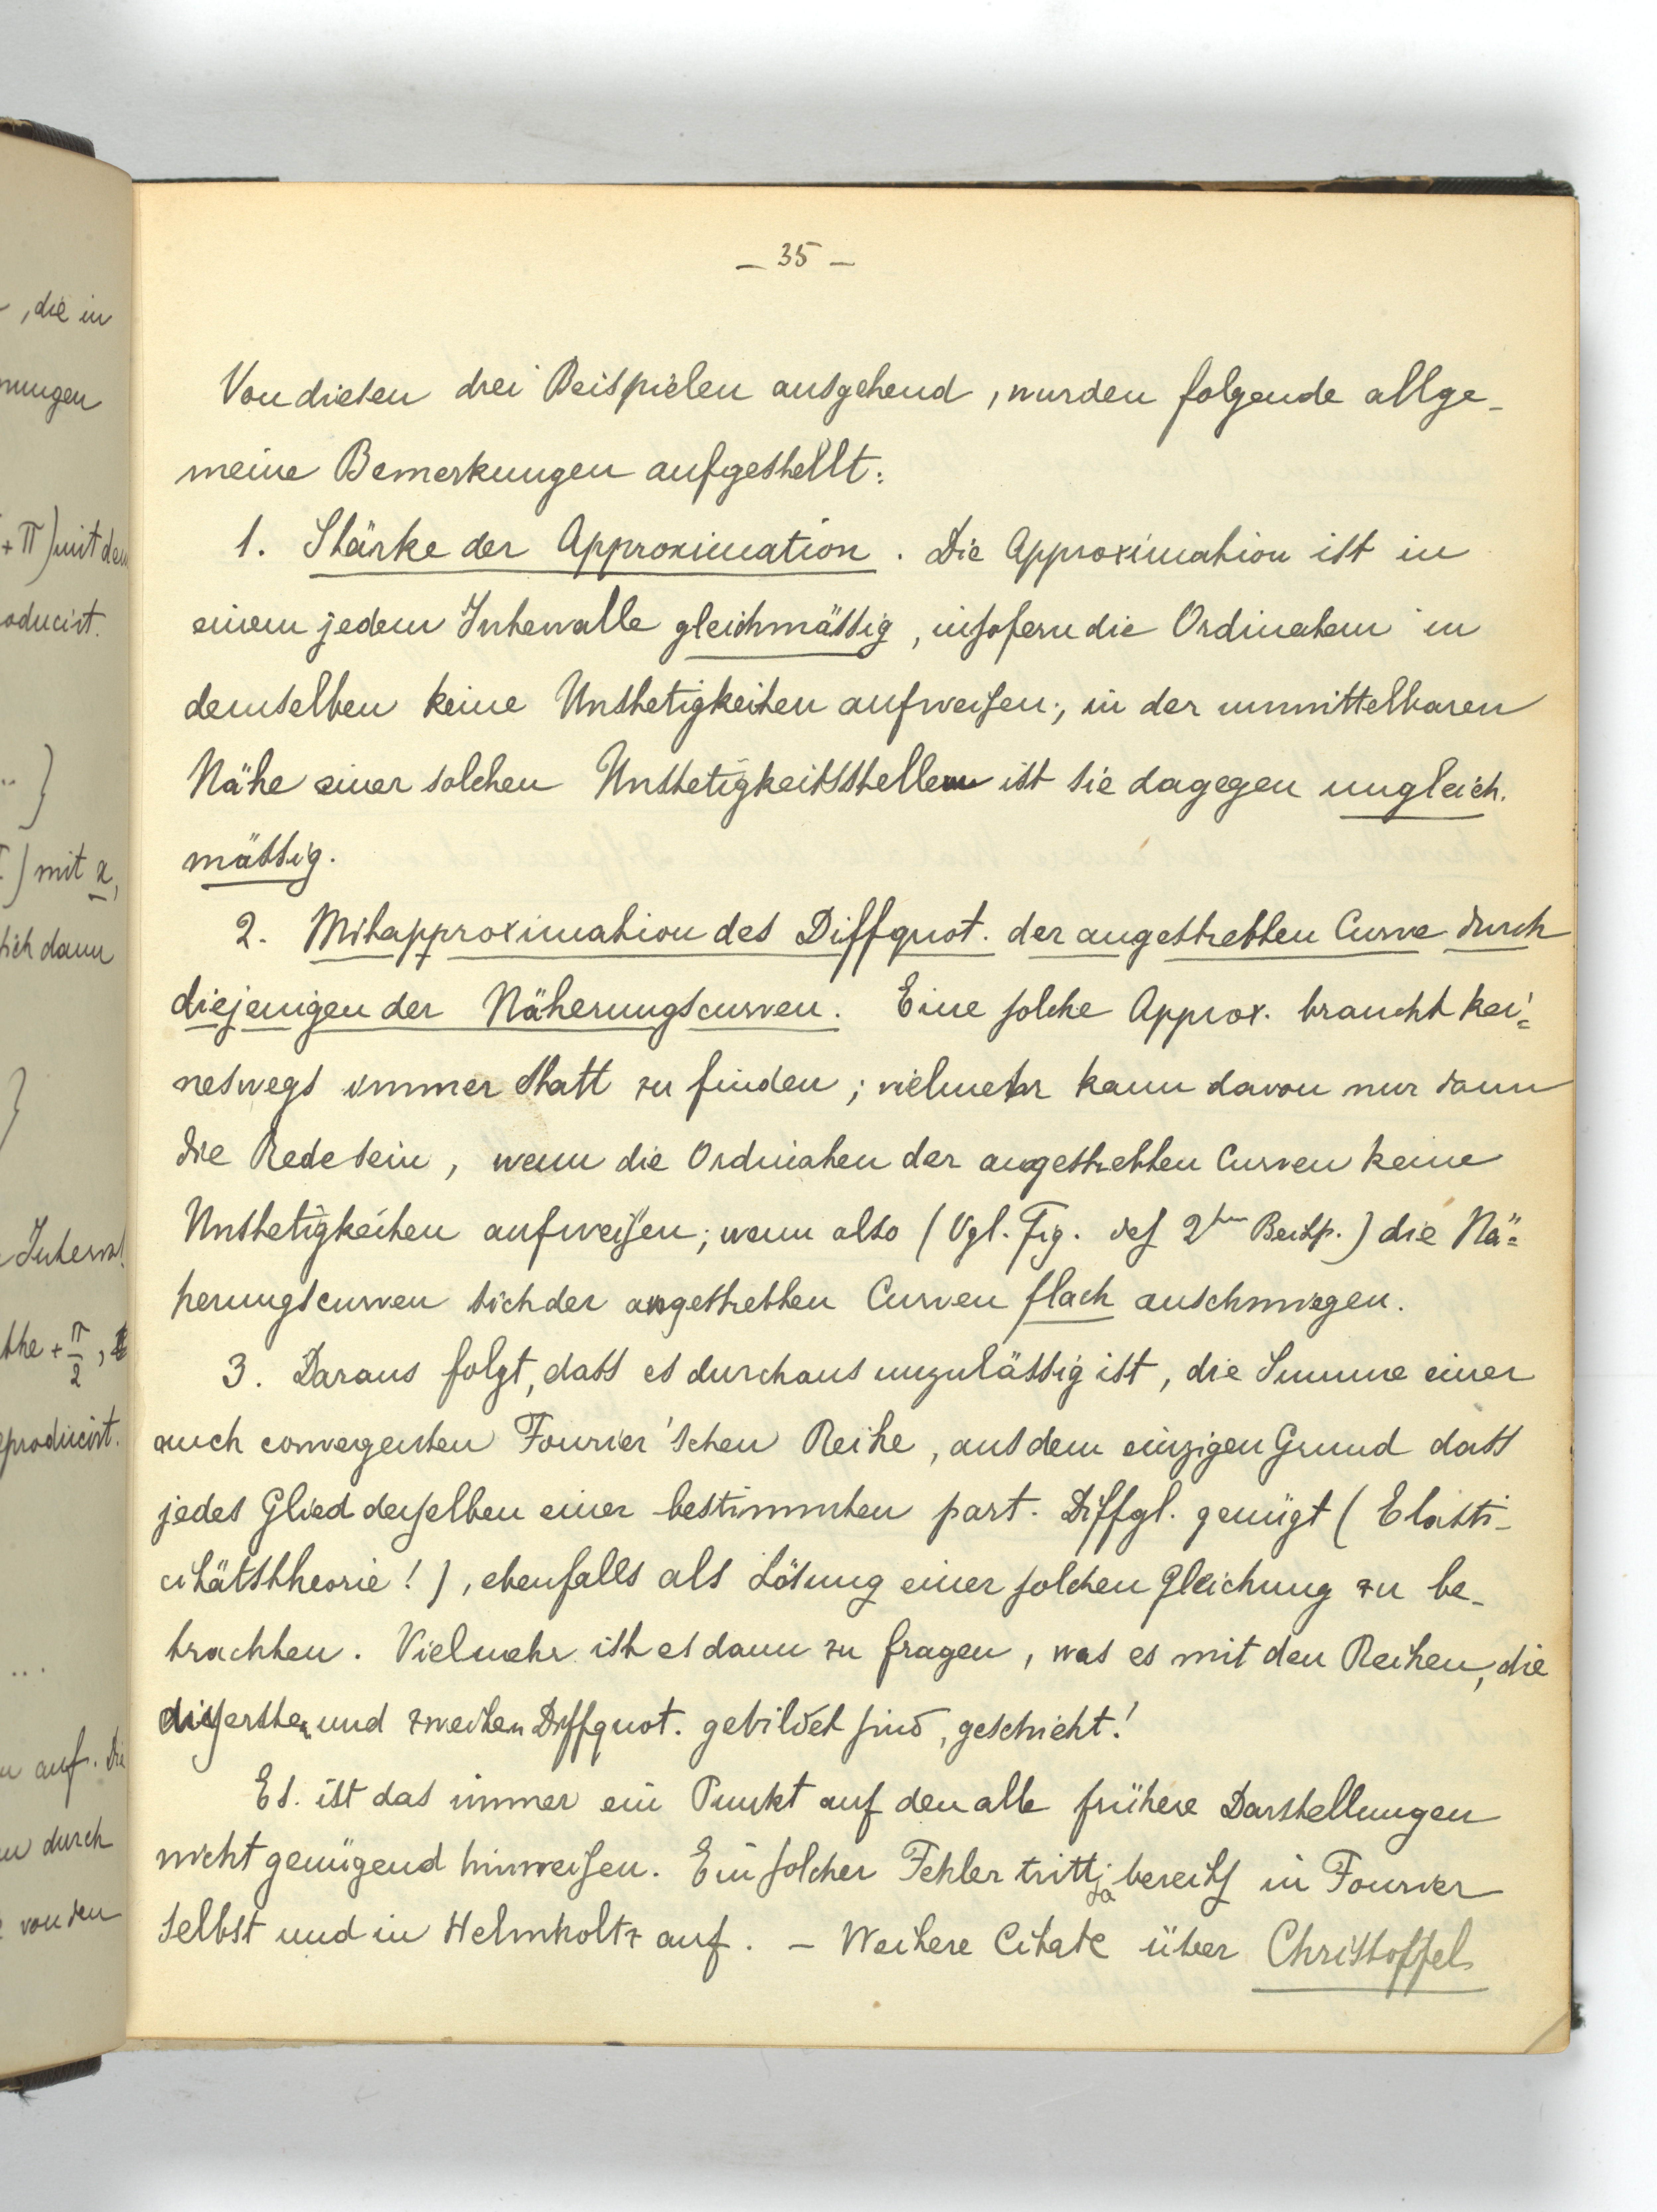 — 35 —
Von diesen drei Beispielen ausgehend, wurden folgende allge-
meine Bemerkungen aufgestellt:
1. Stärke der Approximation. Die Approximation ist in
einem jedem Intervalle gleichmässig, insofern die Ordinaten in
demselben keine Unstetigkeiten aufweisen; in der unmittelbaren
Nähe einer solchen Unstetigkeitsstelle ist sie dagegen ungleich-
mässig.
2. Mitapproximation des Diffquot. der angestrebten Curve durch
diejenigen der Näherungscurven. Eine solche Approx. braucht kei=
neswegs immer statt zu finden; vielmehr kann davon nur dann
die Rede sein, wenn die Ordinaten der angestrebten Curven keine
Unstetigkeiten aufweisen; wenn also (Vgl. Fig. des 2ten Beisp.) die Nä=
herungscurven sich der angestrebten Curven flach anschmiegen.
3. Daraus folgt, dass es durchaus unzulässig ist, die Summe einer
auch convergenten Fourier'schen Reihe, aus dem einzigen Grund dass
jedes Glied derselben einer bestimmten part. Diffgl. genügt (Elasti-
citätstheorie!), ebenfalls als Lösung einer solchen Gleichung zu be-
trachten. Vielmehr ist es dann zu fragen, was es mit den Reihen, die
ersten und zweiten Diffquot. gebildet sind, geschieht!
Es ist das immer ein Punkt auf den alle frühere Darstellungen
nicht genügend hinweisen. Ein solcher Fehler tritt ja bereits in Fourier
selbst und in Helmholtz auf. – Weitere Citate über Christoffel
, die in
nungen
+ π) mit dem
oducirt.
}
) mit x,
sich dann
}
Interval
+ π/2,
eproducirt.
...
auf. Die
durch
von den